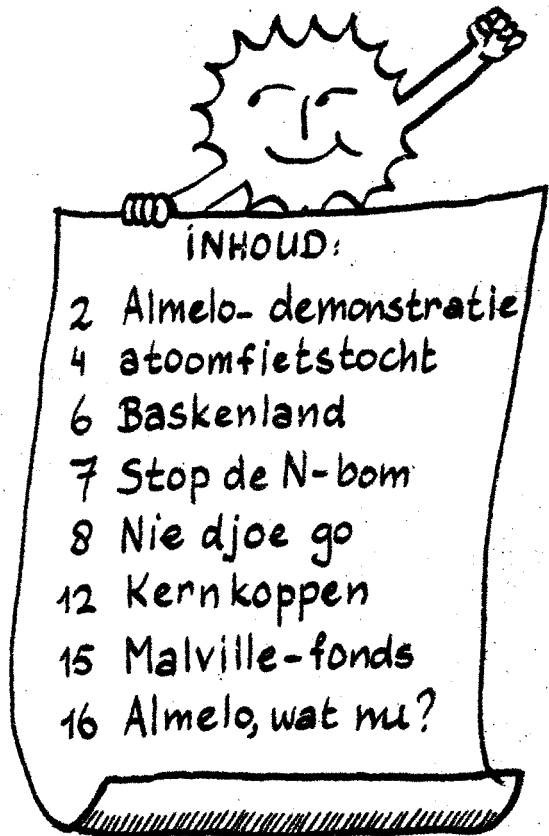 iNHOUD:
2 Almelo- demonstratie
4 atoomfietstocht
6 Baskenland
7 Stop de N-bom
8 Nie djoe go
12 Kernkoppen
15 Malville-fonds
16 Almelo, wat nu?